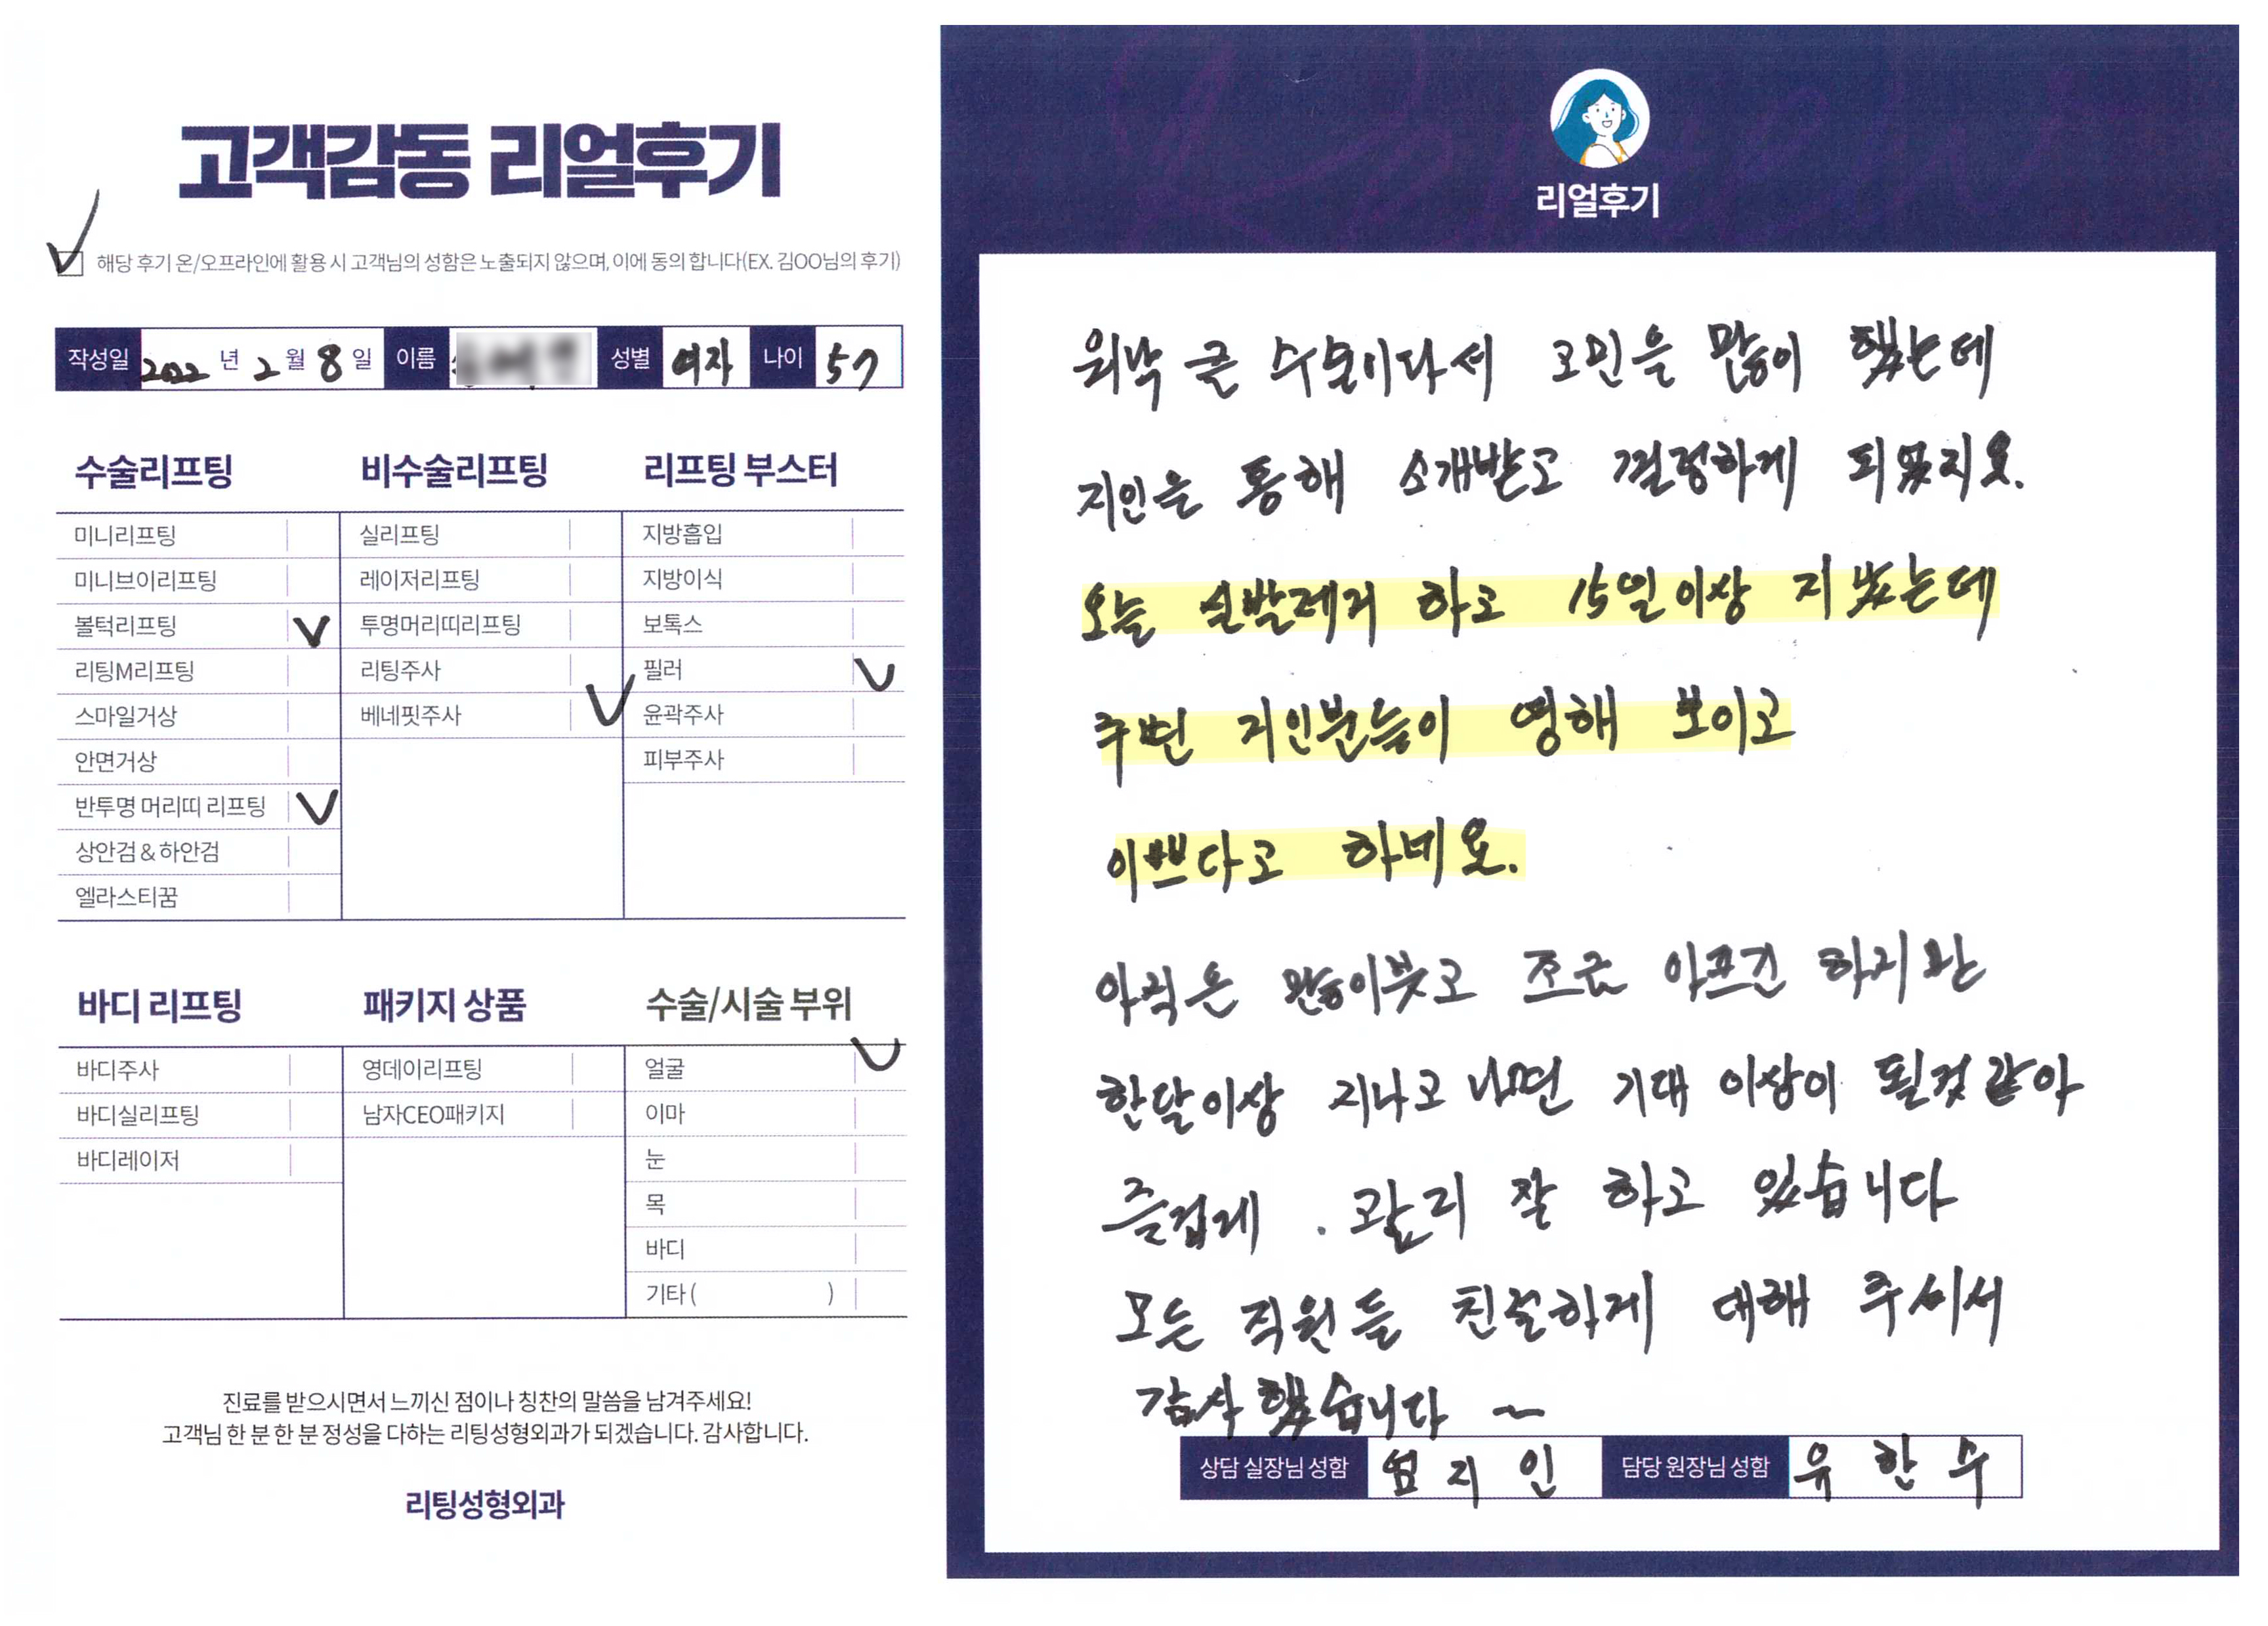 고객감동 리얼후기
해당 후기 온/오프라인에 활용 시 고객님의 성함은 노출되지 않으며, 이에 동의 합니다(EX. 김OO님의 후기)
작성일 2022 년 2 월 8 일 이름 성별 여자 나이 57
수술리프팅
미니리프팅
미니브이리프팅
볼턱리프팅 V
리팅M리프팅
스마일거상
안면거상
반투명 머리띠 리프팅 V
상안검 & 하안검
엘라스티꿈
비수술리프팅
실리프팅
레이저리프팅
투명머리띠리프팅
리팅주사
베네핏주사 V
리프팅 부스터
지방흡입
지방이식
보톡스
필러 V
윤곽주사
피부주사
바디 리프팅
바디주사
바디실리프팅
바디레이저
패키지 상품
영데이리프팅
남자CEO패키지
수술/시술 부위
얼굴 V
이마
눈
목
바디
기타 ( )
진료를 받으시면서 느끼신 점이나 칭찬의 말씀을 남겨주세요!
고객님 한 분 한 분 정성을 다하는 리팅성형외과가 되겠습니다. 감사합니다.
리팅성형외과
리얼후기
워낙 큰 수술이다서 고민을 많이 했는데
지인을 통해 소개받고 결정하게 되었지요.
오늘 실밥제거 하고 15일이상 지났는데
주변 지인분들이 영해 보이고
이쁘다고 하네요.
아직은 많이붓고 조금 아프긴 하지만
한달이상 지나고 나면 기대 이상이 될것 같아
즐겁게 . 관리 잘 하고 있습니다
모든 직원들 친절하게 대해 주셔서
감사했습니다 ~
상담 실장님 성함 엄지인 담당 원장님 성함 유한수